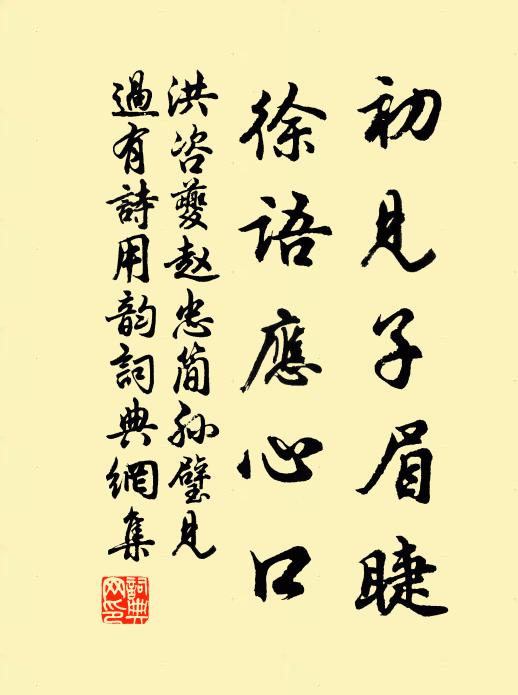 初見子眉睫
徐語應心口
洪咨夔赵忠简孙璧見
過有詩用韵詞典網集